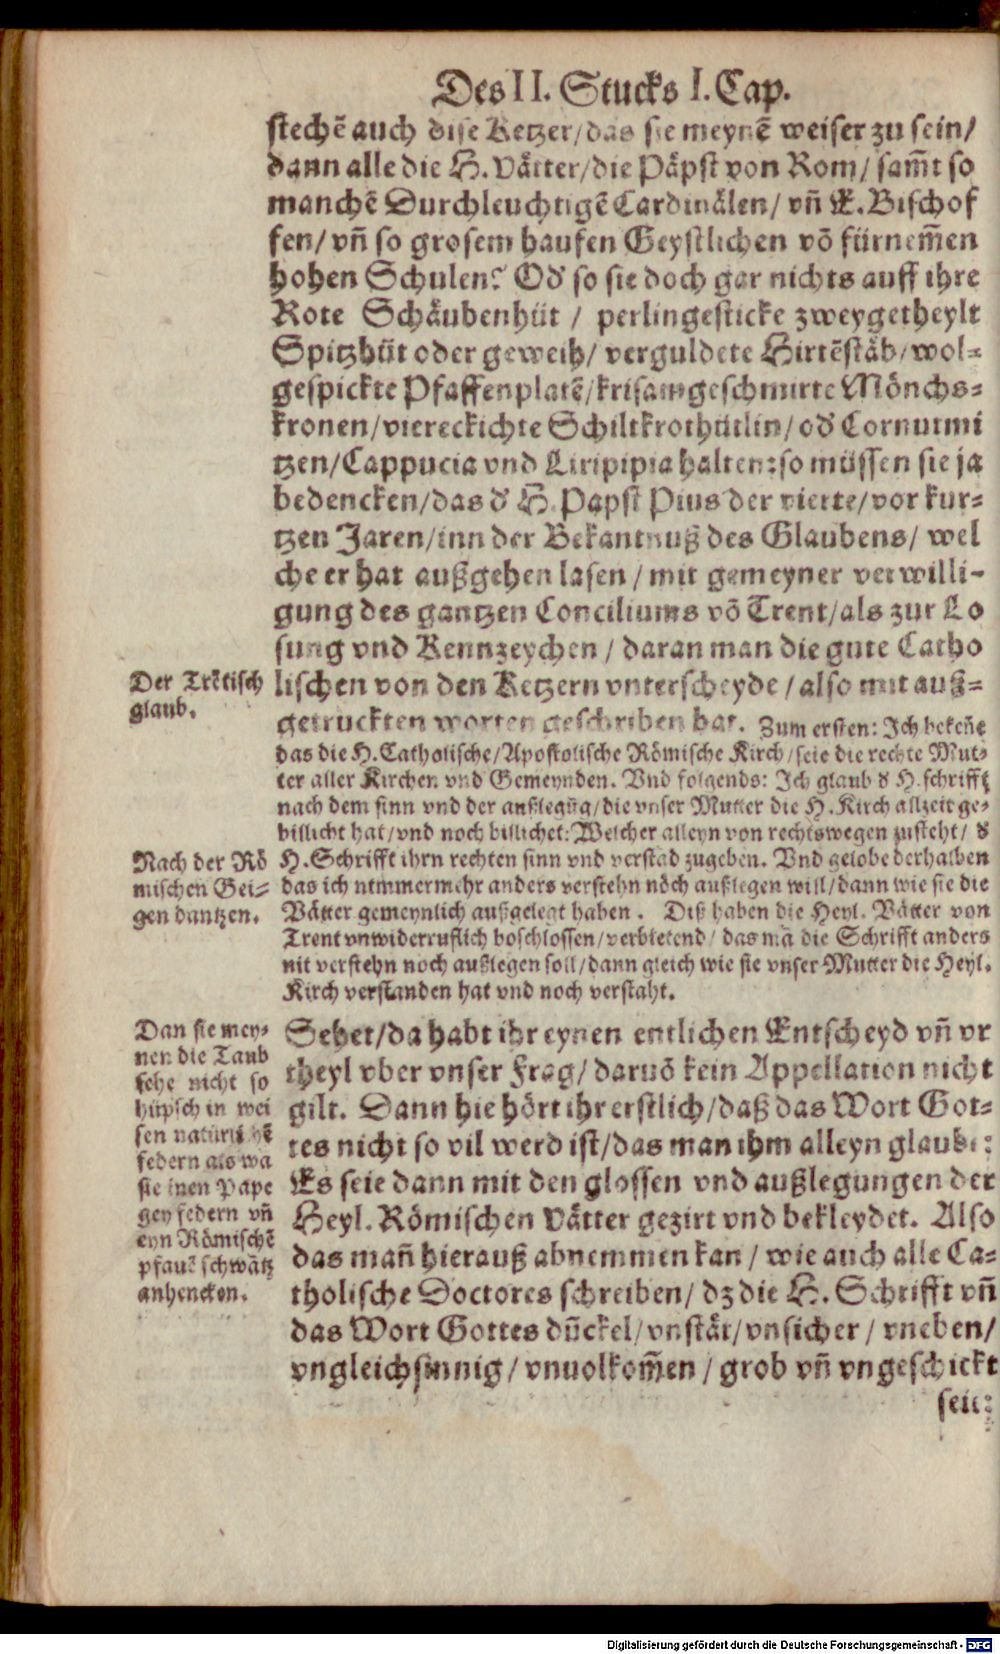 Des II. Stucks I. Cap.
stechẽ auch dise Ketzer/das sie meynẽ weiser zu sein/
dann alle die H. Vätter/die Päpst von Rom/ sam̃t so
manchẽ Durchleuchtigẽ Cardinälen/ vñ E. Bischof
fen/ vñ so grosem haufen Geystlichen võ fürnem̃en
hohen Schulen? Od' so sie doch gar nichts auff ihre
Rote Schäubenhüt / perlingesticke zweygetheylt
Spitzhüt oder geweih/ verguldete Hirtẽstäb/ wol-
gespickte Pfaffenplatẽ/krisamgeschmirte Mönchs-
kronen/viereckichte Schiltkrothütlin/ od' Cornutmi
tzen/Cappucia vnd Liripipia halten: so müssen sie ja
bedencken/das d' H. Papst Pius der vierte/vor kur-
tzen Jaren/inn der Bekantnuß des Glaubens/ wel
che er hat außgehen lasen / mit gemeyner verwilli-
gung des gantzen Conciliums võ Trent/als zur Lo
sung vnd Kennzeychen / daran man die gute Catho
Der Trẽtisch
glaub.
lischen von den Ketzern vnterscheyde / also mit auß-
getruckten worten geschriben hat. Zum ersten: Ich bekeñe
das die H. Catholische/Apostolische Römische Kirch/seie die rechte Mut-
ter aller Kirchen vnd Gemeynden. Vnd folgends: Ich glaub d' H. schrifft
nach dem sinn vnd der außlegũg/die vnser Mutter die H. Kirch allzeit ge-
billicht hat/vnd noch billichet: Welcher alleyn von rechtswegen zusteht/ d'
Nach der Rö
mischen Gei-
gen dantzen.
H. Schrifft ihrn rechten sinn vnd verstãd zugeben. Vnd gelobe derhalben
das ich nimmermehr anders verstehn nöch außlegen will/dann wie sie die
Vätter gemeynlich außgelegt haben. Diß haben die Heyl. Vätter von
Trent vnwiderruflich boschlossen/verbietend/ das mã die Schrifft anders
nit verstehn noch außlegen soll/dann gleich wie sie vnser Mutter die Heyl.
Kirch verstanden hat vnd noch verstaht.
Dan sie mey-
nen die Taub
sehe nicht so
hüpsch in wei
sen natürlichẽ
federn als wã
sie inen Pape
gey federn vñ
eyn Römischẽ
pfauẽ schwãtz
anhencken.
Sehet/da habt ihr eynen entlichen Entscheyd vñ vr
theyl vber vnser Frag/ daruõ kein Appellation nicht
gilt. Dann hie hört ihr erstlich/daß das Wort Got-
tes nicht so vil werd ist/das man ihm alleyn glaube:
Es seie dann mit den glossen vnd außlegungen der
Heyl. Römischen Vätter gezirt vnd bekleydet. Also
das mañ hierauß abnemmen kan / wie auch alle Ca-
tholische Doctores schreiben/ dz die H. Schrifft vñ
das Wort Gottes dũckel/vnstät/vnsicher / vneben/
vngleichsinnig / vnuolkom̃en / grob vñ vngeschickt
seie:
Digitalisierung gefördert durch die Deutsche Forschungsgemeinschaft - DFG